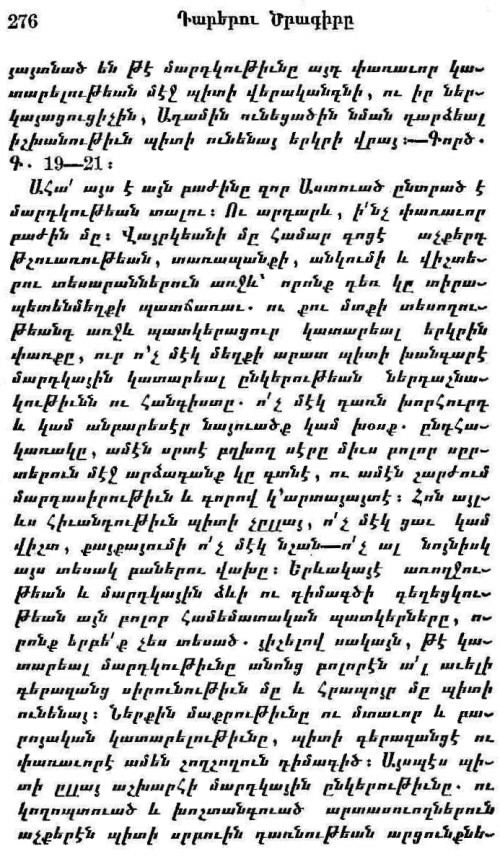 276 Դարերու Ծրագիրը
յայտնած են թէ մարդկութիւնը այդ փառաւոր կա-
տարելութեան մէջ պիտի վերականգնի, ու իր ներ-
կայացուցիչին, Ադամին ունեցածին նման դարձեալ
իշխանութիւն պիտի ունենայ երկրի վրայ։—Գործ.
Գ. 19—21։
Ահա՛ այս է այն բաժինը զոր Աստուած ընտրած է
մարդկութեան տալու։ Ու արդարև, ի՛նչ փառաւոր
բաժին մը։ Վայրկեանի մը համար գոցէ աչքերդ
թշուառութեան, տառապանքի, անկումի և վիշտե-
րու տեսարաններուն առջև՝ որոնք դեռ կը տիրա-
պետենմեղքի պատճառաւ. ու քու մտքի տեսողու-
թեանդ առջև պատկերացուր կատարեալ երկրին
փառքը, ուր ո՛չ մէկ մեղքի արատ պիտի խանգարէ
մարդկային կատարեալ ընկերութեան ներդաշնա-
կութիւնն ու հանգիստը. ո՛չ մէկ դառն խորհուրդ
և կամ անբարեսէր նայուածք կամ խօսք. ընդհա-
կառակը, ամէն սրտէ բղխող սէրը միւս բոլոր սըր-
տերուն մէջ արձագանք կը գտնէ, ու ամէն շարժում
մարդասիրութիւն և գորով կ՚արտայայտէ։ Հոն այլ-
ևս հիւանդութիւն պիտի չըլլայ, ո՛չ մէկ ցաւ կամ
վիշտ, քայքայումի ո՛չ մէկ նշան—ո՛չ ալ նոյնիսկ
այս տեսակ բաներու վախը։ Երևակայէ առողջու-
թեան և մարդկային ձևի ու դիմագծի գեղեցկու-
թեան այն բոլոր համեմատական պատկերները, ո-
րոնք երբե՛ք չես տեսած. յիշելով սակայն, թէ կա-
տարեալ մարդկութիւնը անոնց բոլորէն ա՛լ աւելի
գերազանց սիրունութիւն մը և հրապոյր մը պիտի
ունենայ։ Ներքին մաքրութիւնը ու մտաւոր և բա-
րոյական կատարելութիւնը, պիտի գերազանցէ ու
փառաւորէ ամեն շողշողուն դիմագիծ։ Այսպէս պի-
տի ըլլայ աշխարհի մարդկային ընկերութիւնը. ու
կողոպտուած և խոշտանգուած արտասուողներուն
աչքերէն պիտի սրբուին դառնութեան արցունքնե-